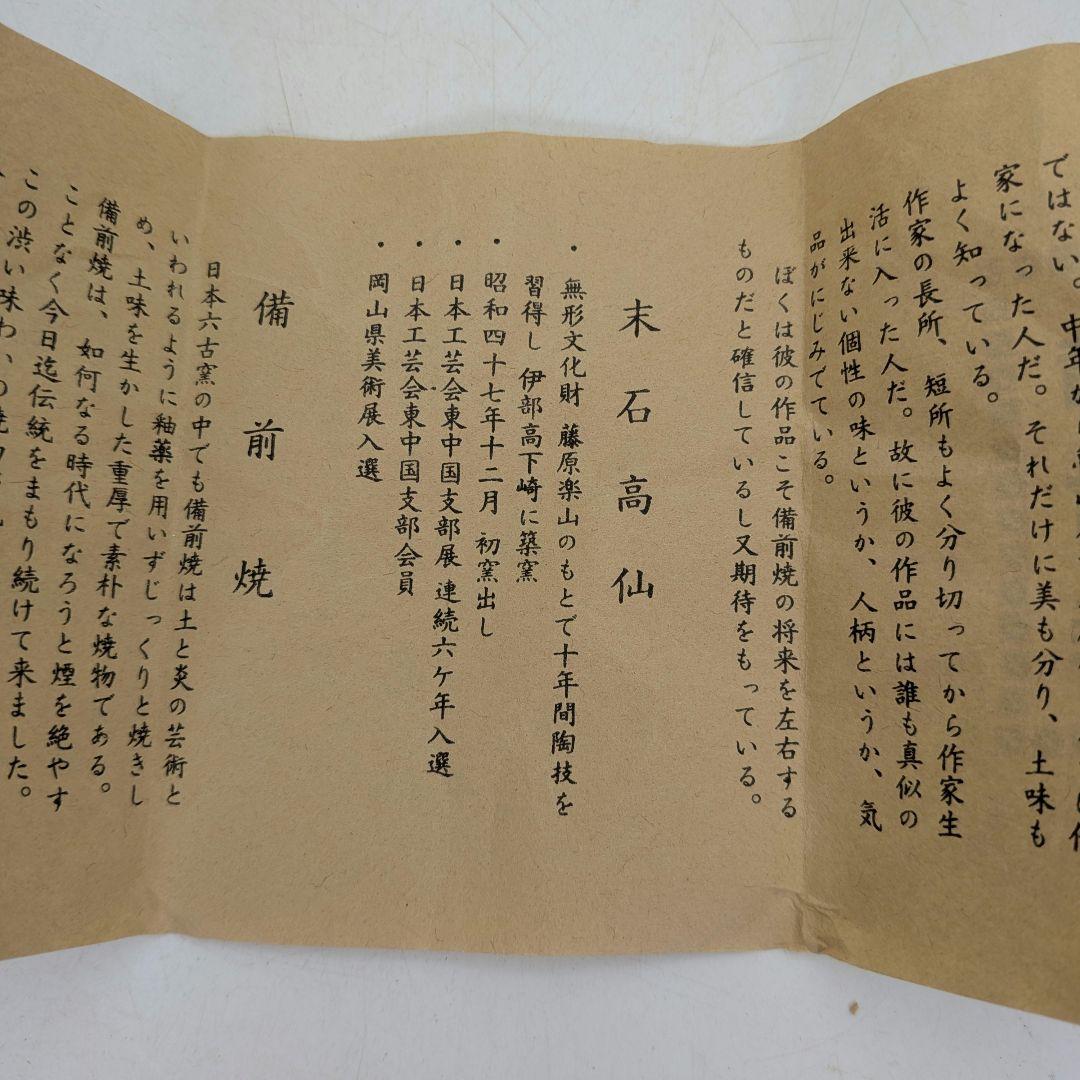 ではない。中年か
家になった人だ。それだけに美も分り、土味も
よく知っている。
作家の長所、短所もよく分り切ってから作家生
活に入った人だ。故に彼の作品には誰も真似の
出来ない個性の味というか、人柄というか、気
品がにじみでている。
ぼくは彼の作品こそ備前焼の将来を左右する
ものだと確信しているし又期待をもっている。
末石高仙
・無形文化財 藤原楽山のもとで十年間陶技を
習得し 伊部高下崎に築窯
・昭和四十七年十二月 初窯出し
・日本工芸会東中国支部展 連続六ケ年入選
・日本工芸会東中国支部会員
・岡山県美術展入選
備前焼
日本六古窯の中でも備前焼は土と炎の芸術と
いわれるように釉薬を用いずじっくりと焼きし
め、土味を生かした重厚で素朴な焼物である。
備前焼は、如何なる時代になろうと煙を絶やす
ことなく今日迄伝統をまもり続けて来ました。
この渋い味わいの焼